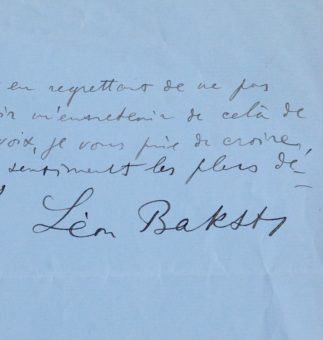 en regrettant de ne pas
m'entretenir de celà de
voix, je vous prie de croire,
sentiments les plus dé-
Léon Bakst